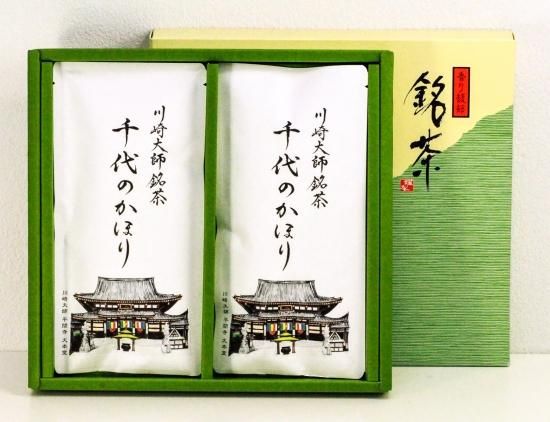 川崎大師銘茶
千代のかほり
川崎大師 平間寺 大本堂
川崎大師銘茶
千代のかほり
川崎大師 平間寺 大本堂
香り
銘茶